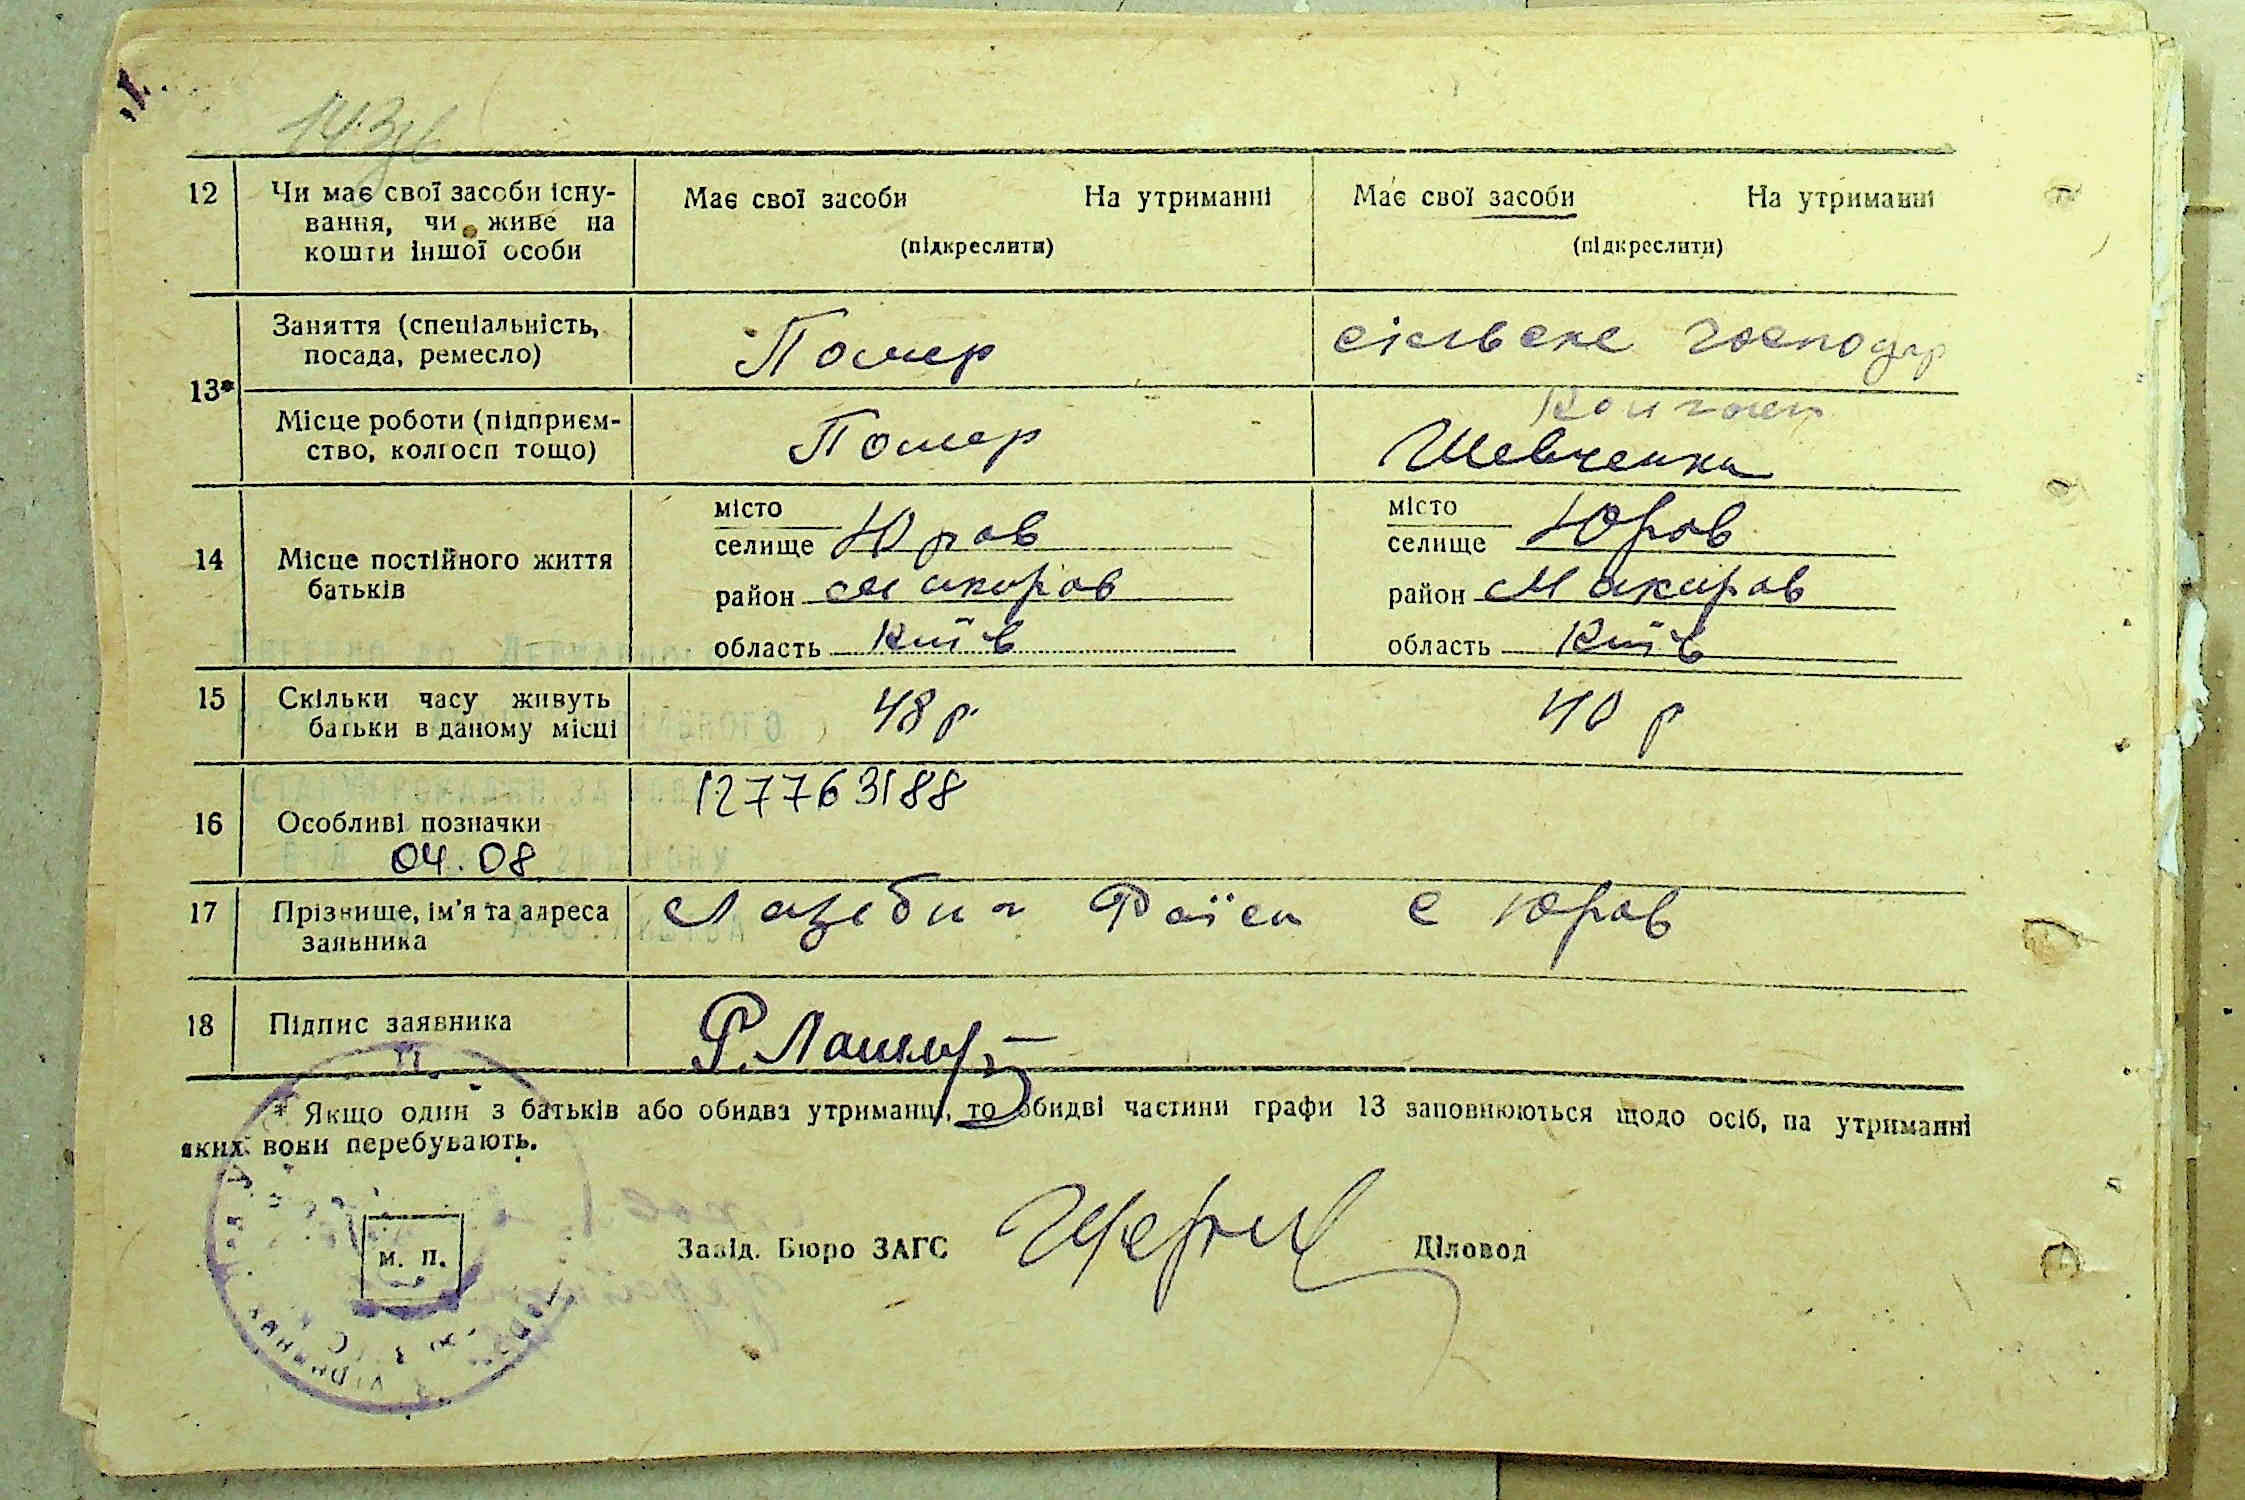 12 Чи має свої засоби існу-
вання, чи живе на
кошти іншої особи
Має свої засоби На утриманні
(підкреслити)
Має свої засоби На утриманні
(підкреслити)
13*
Заняття (спеціальність,
посада, ремесло)
Помер
сільске господар
Місце роботи (підприєм-
ство, колгосп тощо)
Помер
Колгосп
Шевченка
14 Місце постійного життя
батьків
місто
селище Юров
район Макаров
область Київ
місто
селище Юров
район Макаров
область Київ
15 Скільки часу живуть
батьки в даному місці
48 р.
40 р
16 Особливі позначки
04.08
127763188
17 Прізвище, ім'я та адреса
заявника
Лазебна Раїса с Юров
18 Підпис заявника
* Якщо один з батьків або обидва утриманці, то обидві частини графи 13 заповнюються щодо осіб, на утриманні
яких вони перебувають.
м. п.
Завід. Бюро ЗАГС
Діловод